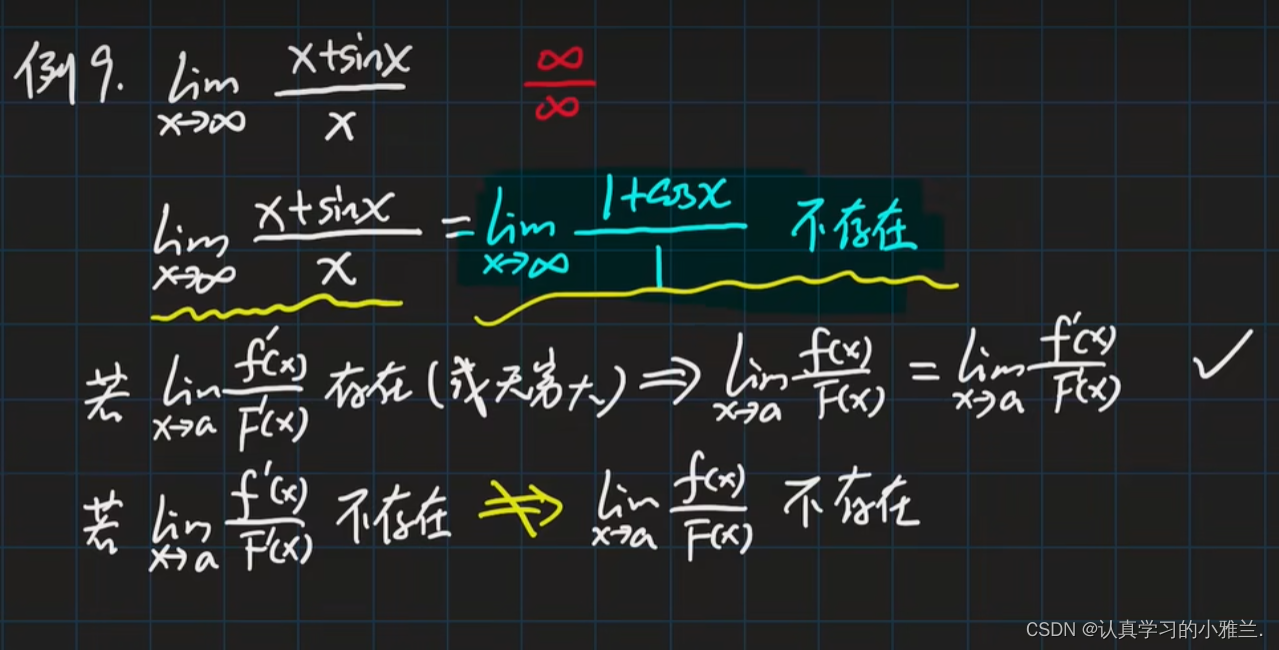 例9. lim x→∞ (x+sinx)/x ∞/∞
lim x→∞ (x+sinx)/x = lim x→∞ (1+cosx)/1 不存在
若 lim x→a f′(x)/F′(x) 存在(或无穷大) ⇒ lim x→a f(x)/F(x) = lim x→a f′(x)/F′(x) ✓
若 lim x→a f′(x)/F′(x) 不存在 ⇏ lim x→a f(x)/F(x) 不存在
CSDN @认真学习的小雅兰.